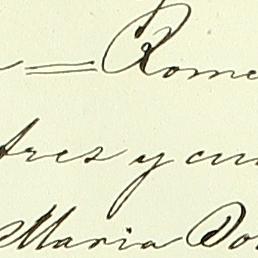 = Rome
tres y cu
Maria Do